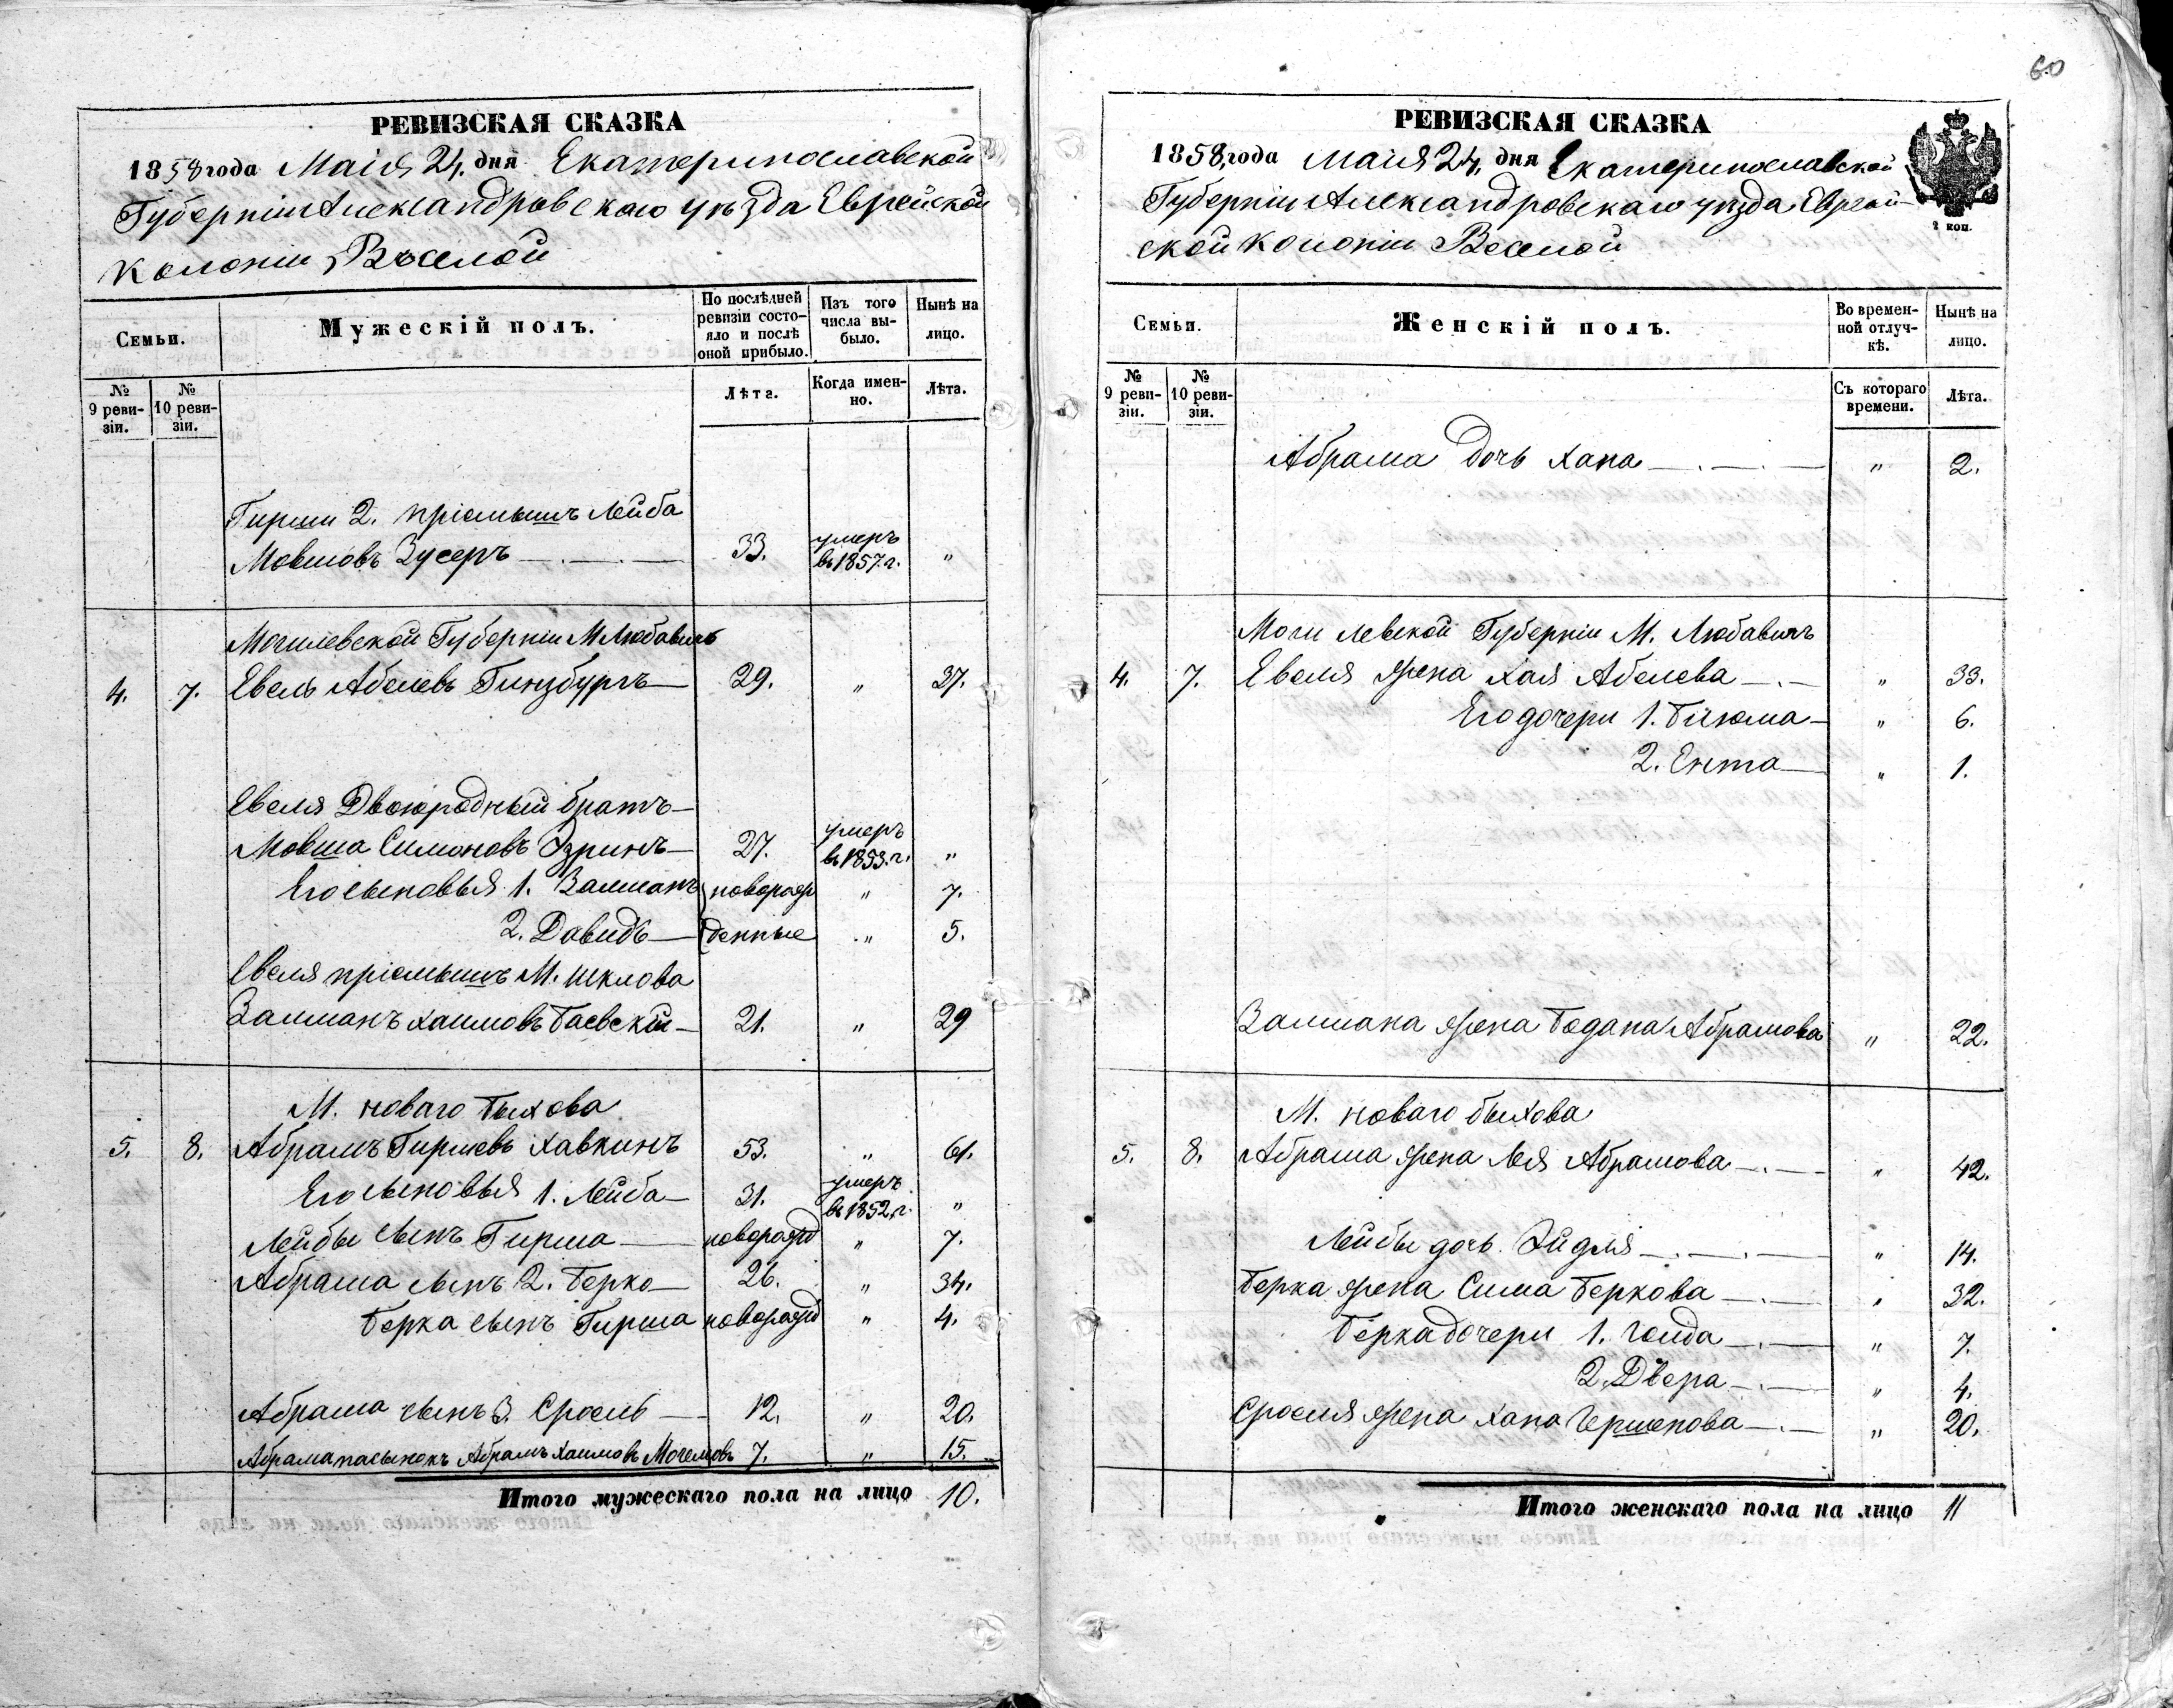 60
РЕВИЗСКАЯ СКАЗКА
1858 года Маія 24. дня Екатеринославской
Губерніи Александровскаго уѣзда Еврейской
Колоніи Вѣселой
Семьи.
Мужескій полъ.
По послѣдней ревизіи состояло и послѣ оной прибыло.
Изъ того числа выбыло.
Нынѣ на лицо.
№ 9 ревизіи.
№ 10 ревизіи.
Лѣта.
Когда именно.
Лѣта.
Гирши 2. пріемышъ Лейба
Мовшовъ Зусеръ 33. умеръ въ 1857. г. "
Могилевской Губерніи М. Любавичъ
4. 7. Евель Абелевъ Гинзбургъ 29. " 37.
Евеля Двоюродный братъ
Мовша Симоновъ Эзринъ 27. умеръ въ 1853. г. "
Его сыновья 1. Залманъ новорож " 7.
2. Давидъ денные " 5.
Евеля пріемышъ М. Шклова
Залманъ Хаимовъ Баевскій 21. " 29
М. новаго Быхова
5. 8. Абрамъ Гиршевъ Хавкинъ 53. " 61.
Его сыновья 1. Лейба 31. умеръ въ 1852. г. "
Лейбы сынъ Гирша новорожд " 7.
Абрама сынъ 2. Берко 26. " 34.
Берка сынъ Гирша новорожд " 4.
Абрама сынъ 3. Сроель 12. " 20.
Абрама пасынокъ Абрамъ Хаимовъ 7. " 15.
Итого мужескаго пола на лицо 10.
РЕВИЗСКАЯ СКАЗКА
1858, года Маія 24, дня Екатеринославской
Губерніи Александровскаго уѣзда Еврей-
ской Колоніи Веселой
2 коп.
Семьи.
Женскій полъ.
Во временной отлучкѣ.
Нынѣ на лицо.
№ 9 ревизіи.
№ 10 ревизіи.
Съ котораго времени.
Лѣта.
Абрама дочь Хана " 2.
Могилевской Губерніи М. Любавичъ
4. 7. Евеля жена Хая Абелева " 33.
Его дочери 1. " 6.
2. Ента " 1.
Залмана жена Бодана Абрамова " 22.
М. новаго Быхова
5. 8. Абрама жена Лея Абрамова " 42.
Лейбы дочь Эйдля " 14.
Берка жена Сима Беркова " 32.
Берка дочери 1. " 7.
2. Двера " 4.
Сроеля жена Хана Гершенова " 20.
Итого женскаго пола на лицо 11